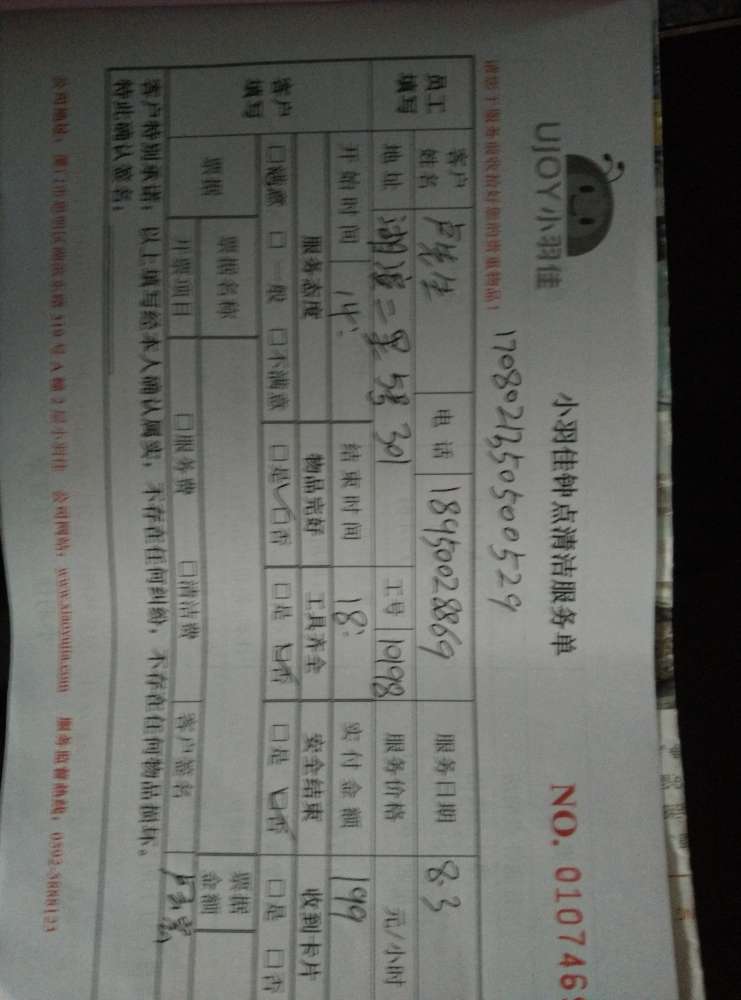 UJOY小羽佳
小羽佳钟点清洁服务单
NO. 010746
请您于服务前收拾好您的贵重物品!
1708021350500529
员工填写
客户姓名 电话 18950028869 服务日期 8.3
地址 二里 号 301 工号 10198 服务价格 元/小时
开始时间 14: 结束时间 18: 实付金额 199
客户填写
服务态度 物品完好 工具齐全 安全结束 收到卡片
□满意 □一般 □不满意 □是 □否 □是 □否 □是 □否 □是 □否
票据 票据名称 票据金额
开票项目 □服务费 □清洁费 客户签名
客户特别承诺:以上填写经本人确认属实,不存在任何纠纷,不存在任何物品损坏。
特此确认签名:
公司地址:厦门市思明区 310号A幢2层小羽佳 公司网站:www.xiaoyujia.com 服务监督热线:0592-5888123